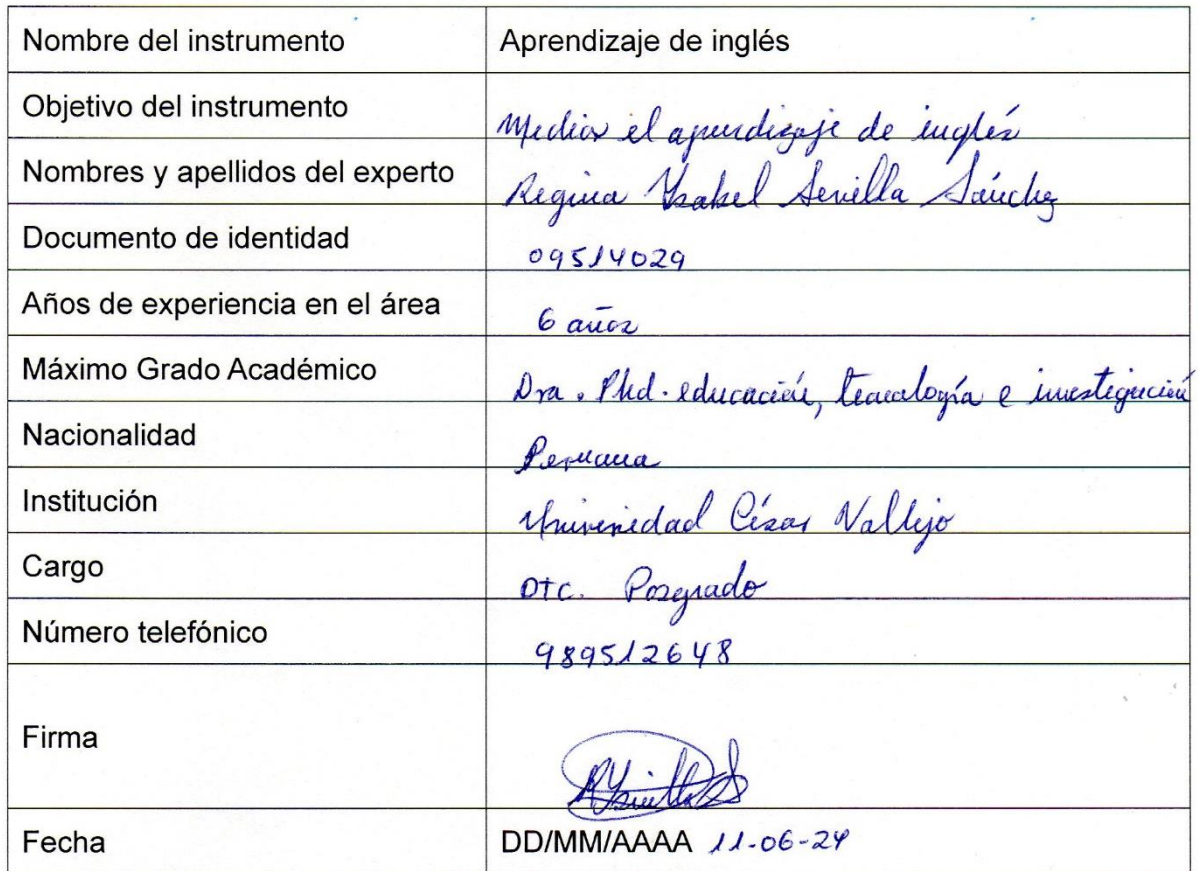 Nombre del instrumento Aprendizaje de inglés
Objetivo del instrumento Medir el aprendizaje de inglés
Nombres y apellidos del experto Regina Ysabel Sevilla Sánchez
Documento de identidad 09514029
Años de experiencia en el área 6 años
Máximo Grado Académico Dra. Phd. educación, tecnología e investigación
Nacionalidad Peruana
Institución Universidad César Vallejo
Cargo DTC. Posgrado
Número telefónico 989512648
Firma
Fecha DD/MM/AAAA 11-06-24